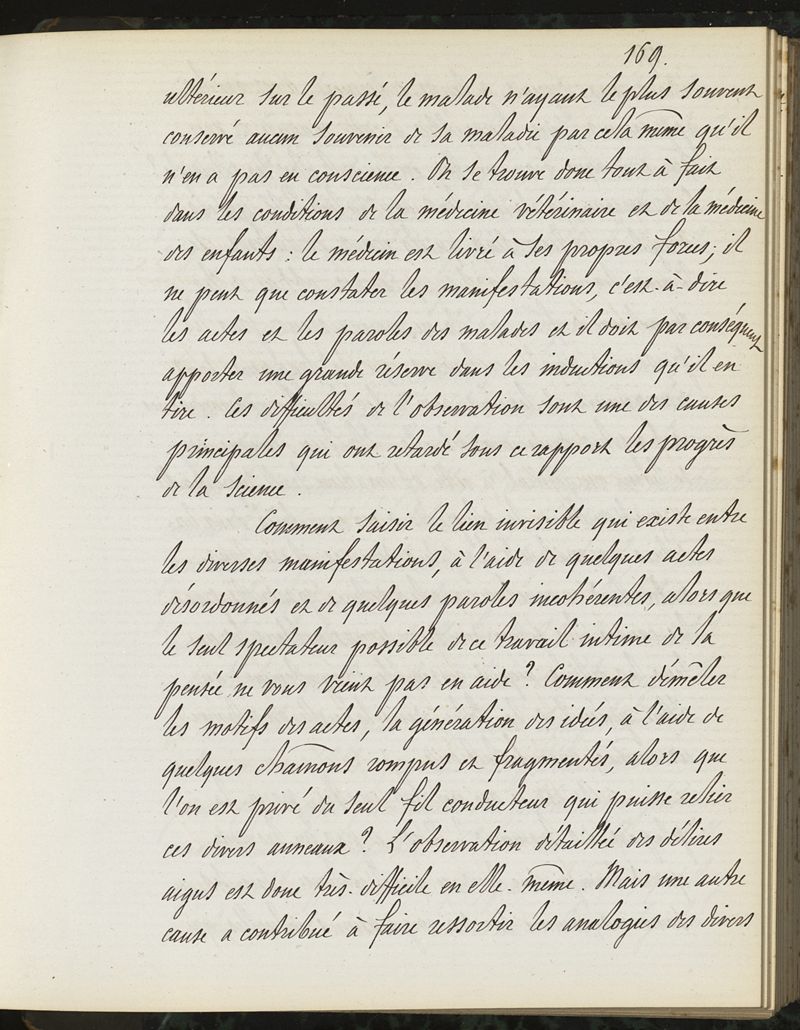 169.
ultérieur sur le passé, le malade n'ayant le plus souvent
conservé aucun souvenir de sa maladie par cela même qu'il
n'en a pas eu conscience. On se trouve donc tout à fait
dans les conditions de la médecine vétérinaire et de la médecine
des enfants : le médecin est livré à ses propres forces; il
ne peut que constater les manifestations, c'est-à-dire
les actes et les paroles des malades et il doit par conséquent
apporter une grande réserve dans les inductions qu'il en
tire. Ces difficultés de l'observation sont une des causes
principales qui ont retardé sous ce rapport les progrès
de la science.
Comment saisir le lien invisible qui existe entre
les diverses manifestations, à l'aide de quelques actes
désordonnés et de quelques paroles incohérentes, alors que
le seul spectateur possible de ce travail intime de la
pensée ne vous vient pas en aide ? Comment démêler
les motifs des actes, la génération des idées, à l'aide de
quelques chaînons rompus et fragmentés, alors que
l'on est privé du seul fil conducteur qui puisse relier
ces divers anneaux ? L'observation détaillée des délires
aigus est donc très-difficile en elle-même. Mais une autre
cause a contribué à faire ressortir les analogies des divers